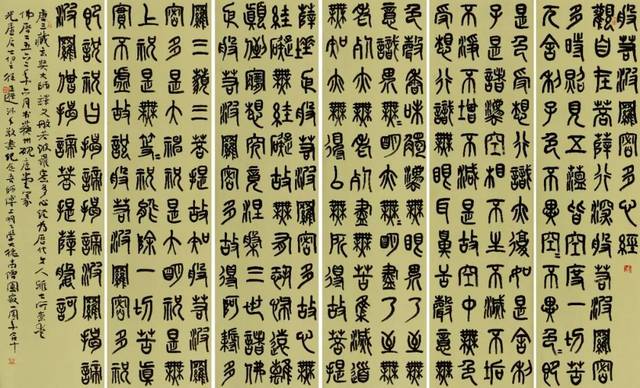 般若波羅密多心經
觀自在菩薩行深般若波羅密
多時照見五蘊皆空度一切苦
厄舍利子色不異空空不異色色即
是空空即是色
受想行識亦復如是舍利
子是諸法空相不生不滅不垢
不淨不增不減是故空中無色
無受想行識無眼耳鼻舌身意無
色聲香味觸法無眼界乃至無
意識界無無明亦無無明盡乃至無
老死亦無老死盡無苦集滅道
無智亦無得以無所得故菩提
薩埵依般若波羅密多故心無
罣礙無罣礙故無有恐怖遠離
顛倒夢想究竟涅槃三世諸佛
依般若波羅密多故得阿耨多
羅三藐三菩提故知般若波羅
密多是大神呪是大明呪是無
上呪是無等等呪能除一切苦真
實不虛故說般若波羅密多呪
即說呪曰揭諦揭諦波羅揭諦
波羅僧揭諦菩提薩婆訶
唐三藏玄奘大師譯文般若波羅密多心經